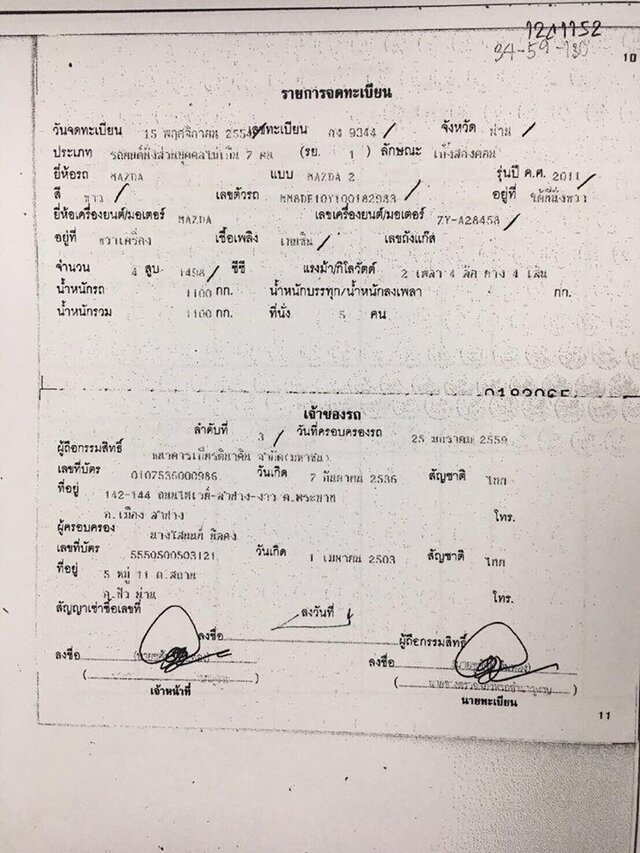 1201152
94-59-130
10
รายการจดทะเบียน
วันจดทะเบียน 15 พฤศจิกายน 2554 เลขทะเบียน กง 9344 จังหวัด น่าน
ประเภท รถยนต์นั่งส่วนบุคคลไม่เกิน 7 คน (รย. 1 ) ลักษณะ เก๋งสองตอน
ยี่ห้อรถ MAZDA แบบ MAZDA 2 รุ่นปี ค.ศ. 2011
สี ขาว เลขตัวรถ อยู่ที่ ใต้ที่นั่งขวา
ยี่ห้อเครื่องยนต์/มอเตอร์ MAZDA เลขเครื่องยนต์/มอเตอร์ ZY-A28458
อยู่ที่ ขวาเครื่อง เชื้อเพลิง เบนซิน เลขถังแก๊ส
จำนวน 4 สูบ 1498 ซีซี แรงม้า/กิโลวัตต์ 2 เพลา 4 ล้อ ยาง 4 เส้น
น้ำหนักรถ 1100 กก. น้ำหนักบรรทุก/น้ำหนักลงเพลา กก.
น้ำหนักรวม 1100 กก. ที่นั่ง 5 คน
เจ้าของรถ
ลำดับที่ 3 วันที่ครอบครองรถ 25 มกราคม 2559
ผู้ถือกรรมสิทธิ์ ธนาคารเกียรตินาคิน จำกัด(มหาชน)
เลขที่บัตร 0107536000986 วันเกิด 7 กันยายน 2536 สัญชาติ ไทย
ที่อยู่ 142-144 ถนนไฮเวย์-ลำปาง-งาว ต.พระบาท
อ.เมือง ลำปาง โทร.
ผู้ครอบครอง
เลขที่บัตร 5550500503121 วันเกิด 1 เมษายน 2503 สัญชาติ ไทย
ที่อยู่ 5 หมู่ 11 ต.สถาน
อ.ปัว น่าน โทร.
สัญญาเช่าซื้อเลขที่ ลงวันที่
ลงชื่อ ผู้ถือกรรมสิทธิ์
ลงชื่อ ลงชื่อ
เจ้าหน้าที่ นายทะเบียน
11